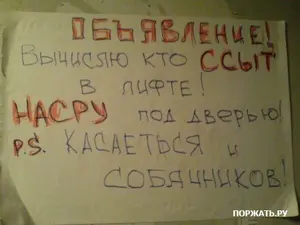 ОБЪЯВЛЕНИЕ!
ВЫЧИСЛЮ КТО ССЫТ
В ЛИФТЕ!
НАСРУ ПОД ДВЕРЬЮ!
P.S. КАСАЕТЬСЯ И
СОБАЧНИКОВ!
ПОРЖАТЬ.РУ